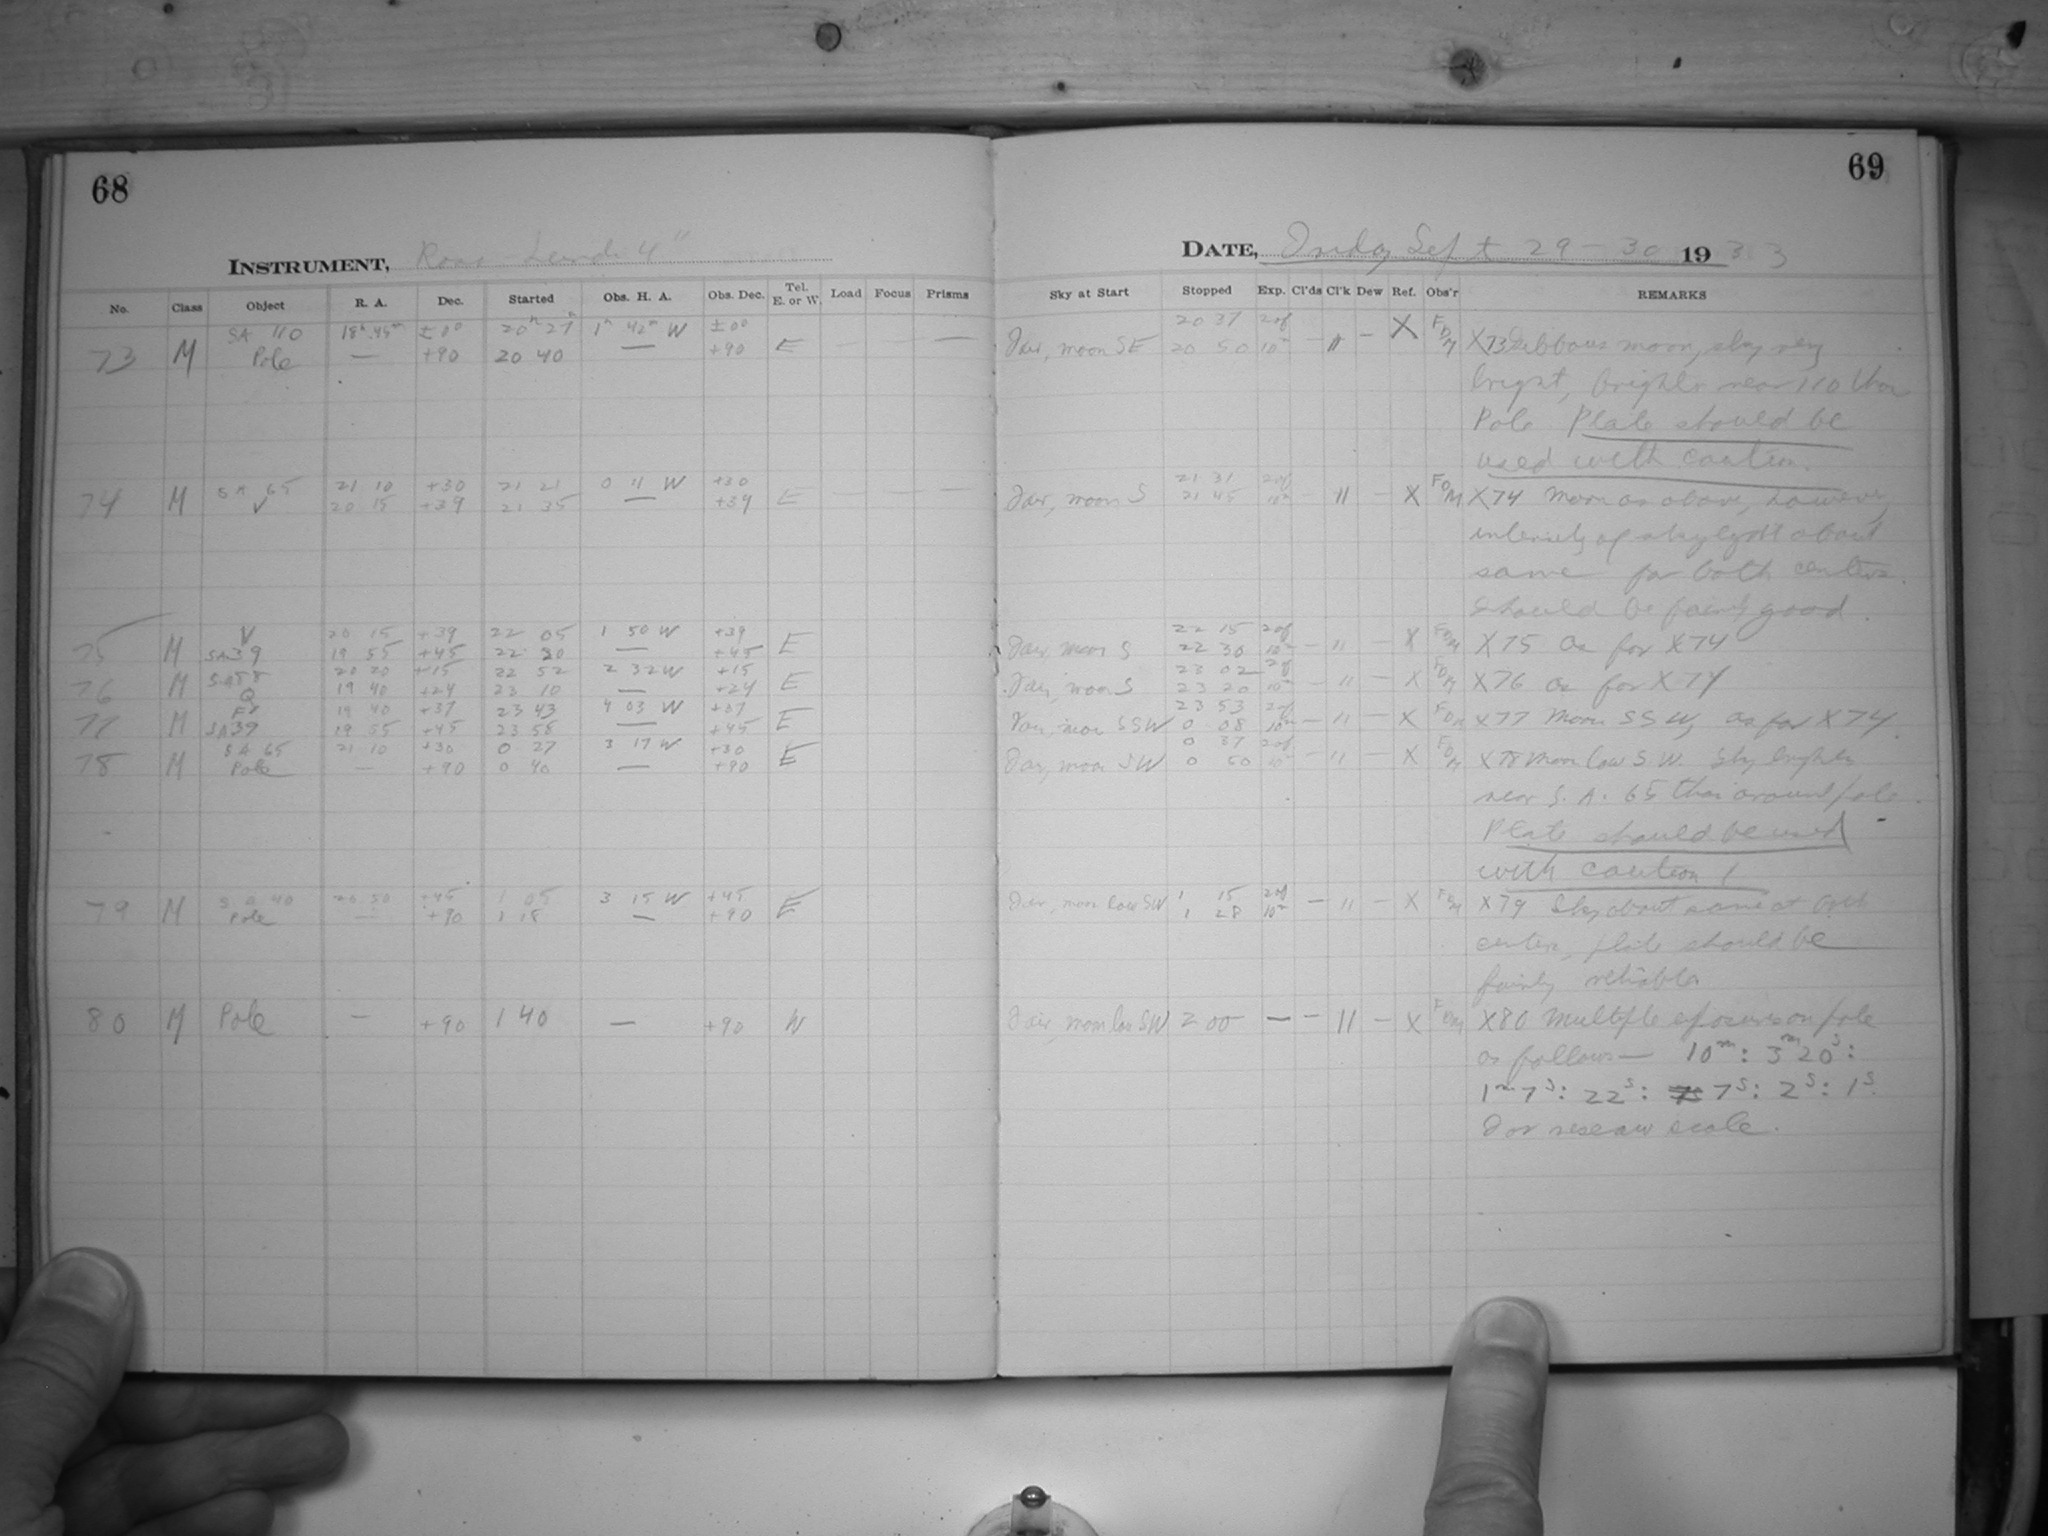 68
INSTRUMENT, Ross Lundin 4"
No. Class Object R. A. Dec. Started Obs. H. A. Obs. Dec. Tel. E. or W. Load Focus Prisms
SA 110 18h 45m ±0° 20h 27m 1h 42m W ±0°
73 M Pole — +90 20 40 — +90 E — — —
74 M SA 65 21 10 +30 21 21 0 11 W +30
V 20 15 +39 21 35 — +39 E
V 20 15 +39 22 05 1 50 W +39
75 M SA39 19 55 +45 22 20 — +45 E
SA 20 20 +15 22 52 2 32 W +15
76 M Q 19 40 +24 23 10 — +24 E
19 40 +37 23 43 4 03 W +37
77 M SA39 19 55 +45 23 58 — +45 E
SA 65 21 10 +30 0 27 3 17 W +30
78 M Pole — +90 0 40 — +90 E
SA 40 20 50 +45 1 05 3 15 W +45
79 M Pole — +90 1 18 — +90 E
80 M Pole — +90 1 40 — +90 W
69
DATE, Friday Sept 29 - 30 1933
Sky at Start Stopped Exp. Cl'ds Cl'k Dew Ref. Obs'r REMARKS
20 37 2 of
Fair, moon SE 20 50 10m — 11 — X FDM X73 Gibbous moon, sky very
bright, brighter near 110 than
Pole Plate should be
used with caution.
21 31 2 of
Fair, moon S 21 45 10m — 11 — X FDM X74 Moon as above, however,
intensity of sky light about
same for both centers.
Should be fairly good.
22 15 2 of
Fair, moon S 22 30 10m — 11 — X FDM X75 as for X74
23 02 2 of
Fair, moon S 23 20 10m — 11 — X FDM X76 as for X74
23 53 2 of
Fair, moon SSW 0 08 10m — 11 — X FDM X77 Moon SSW, as for X74.
0 37 2 of
Fair, moon SW 0 50 10m — 11 — X FDM X78 Moon low S.W. Sky brighter
near S. A. 65 than around pole.
Plate should be used
with caution!
1 15 2 of
Fair, moon low SW 1 28 10m — 11 — X FDM X79 Sky about same at both
centers, plate should be
fairly reliable
Fair, moon low SW 2 00 — — 11 — X FDM X80 Multiple exposures on pole
as follows — 10m : 3m 20s :
1m 7s : 22s : 7s : 2s : 1s.
For reseau scale.